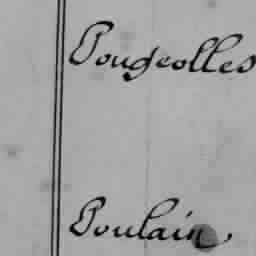 Pougeolles
Poulain,